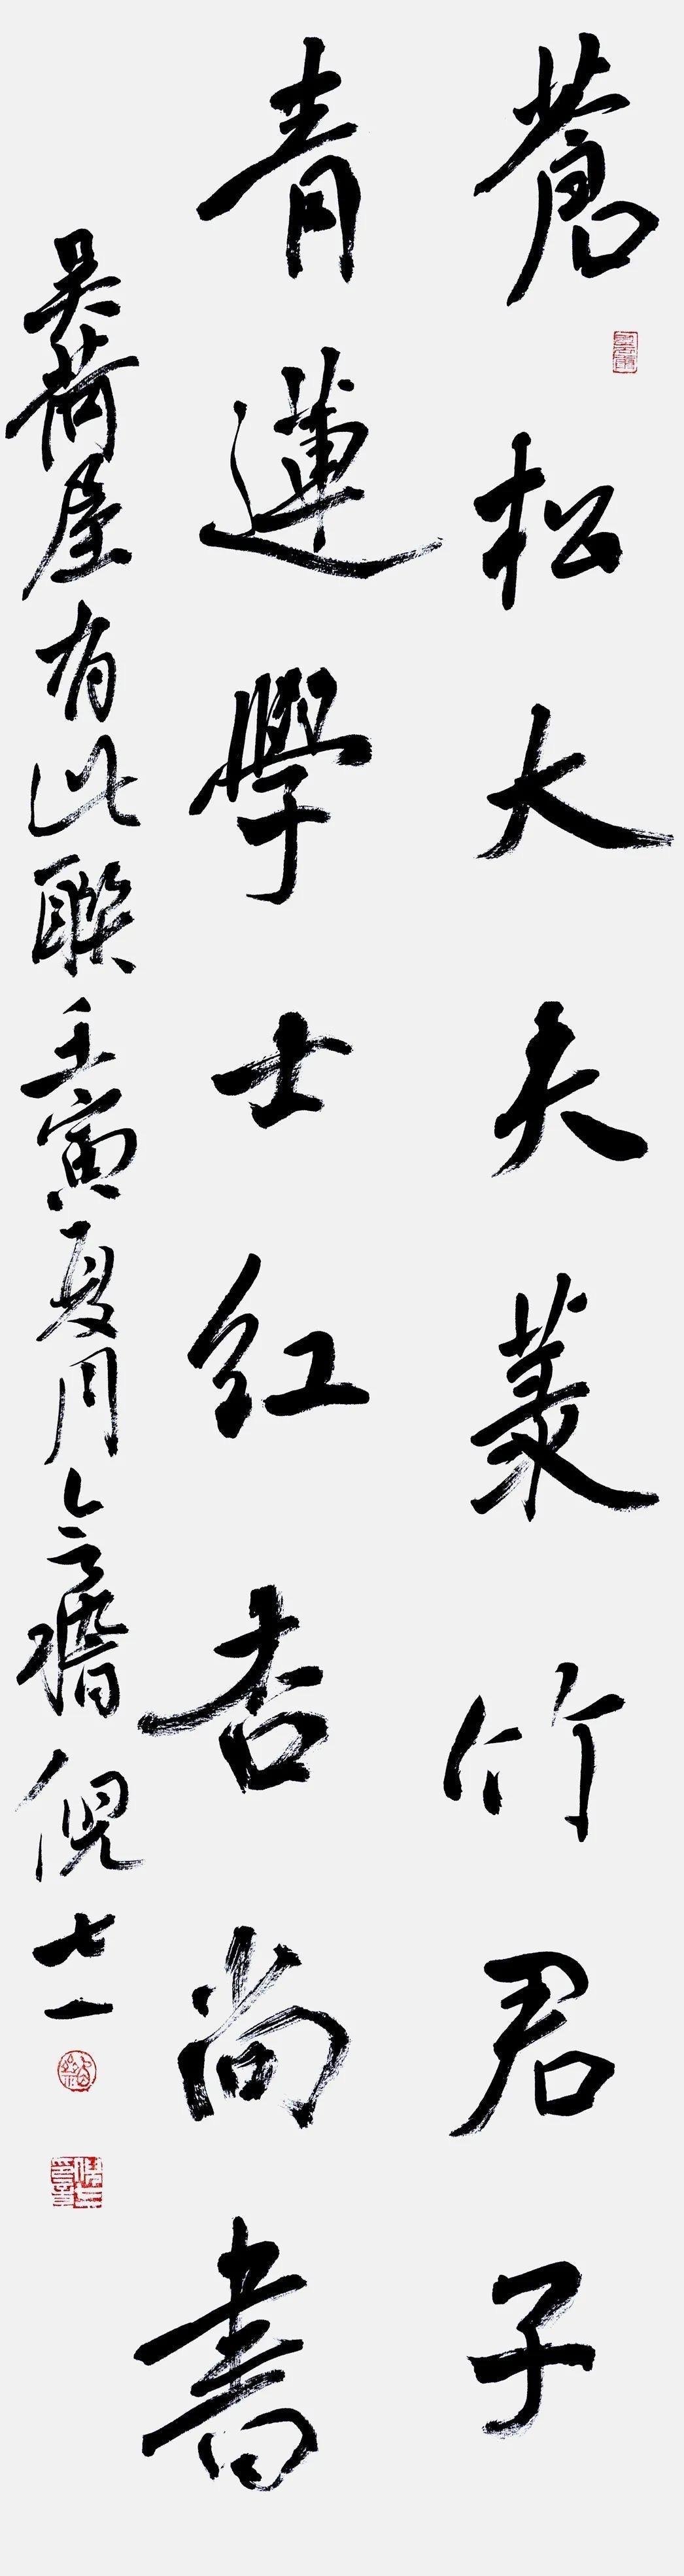 蒼松大夫菉竹君子
青蓮學士红杏尚書
吴荷屋有此聯壬寅夏月會稽倪七一